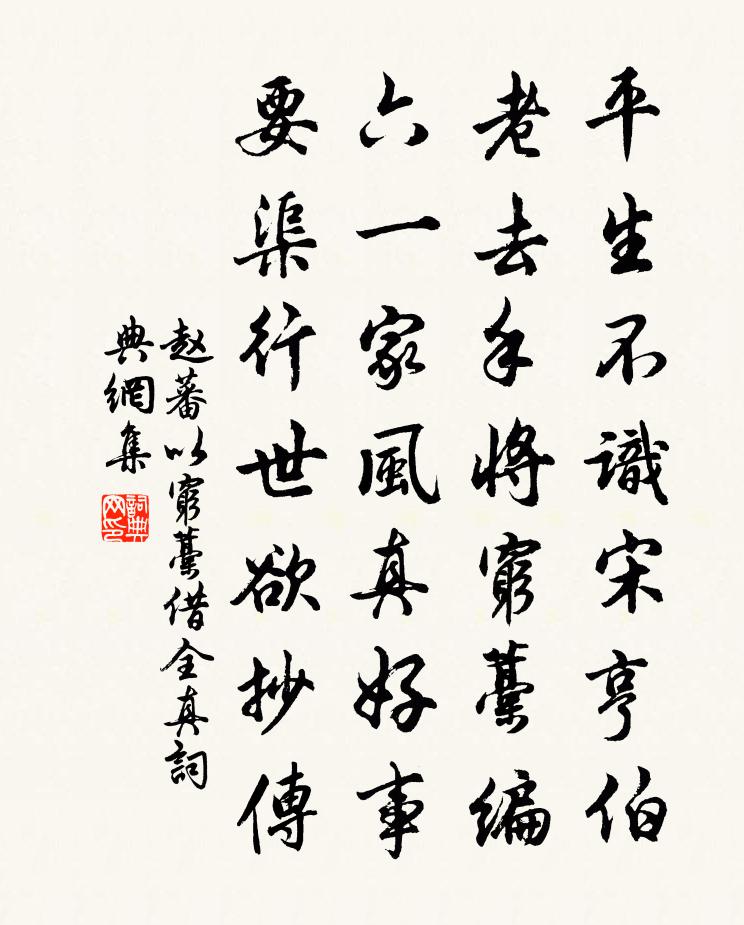 平生不識宋亨伯
老去手將窮藁編
六一家風真好事
要渠行世欲抄傳
赵蕃以窮藁借全真詞
典網集
詞典网印